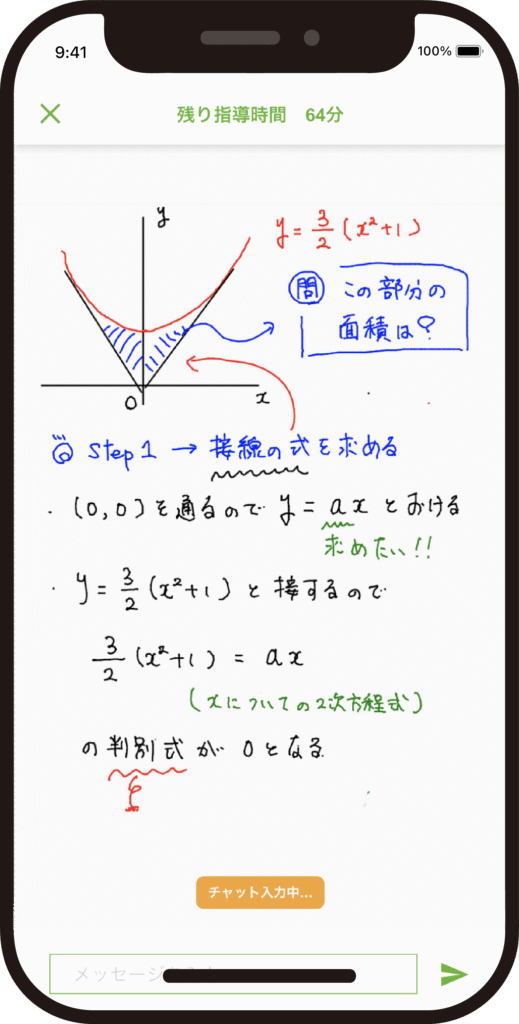 9:41
100%
残り指導時間 64分
y
y = 3/2 (x²+1)
問 この部分の
面積は?
O
x
Step 1 → 接線の式を求める
・(0,0)を通るので y = ax とおける
求めたい!!
・y = 3/2 (x²+1) と接するので
3/2 (x²+1) = ax
(xについての2次方程式)
の判別式が 0となる
チャット入力中...
メッセージ